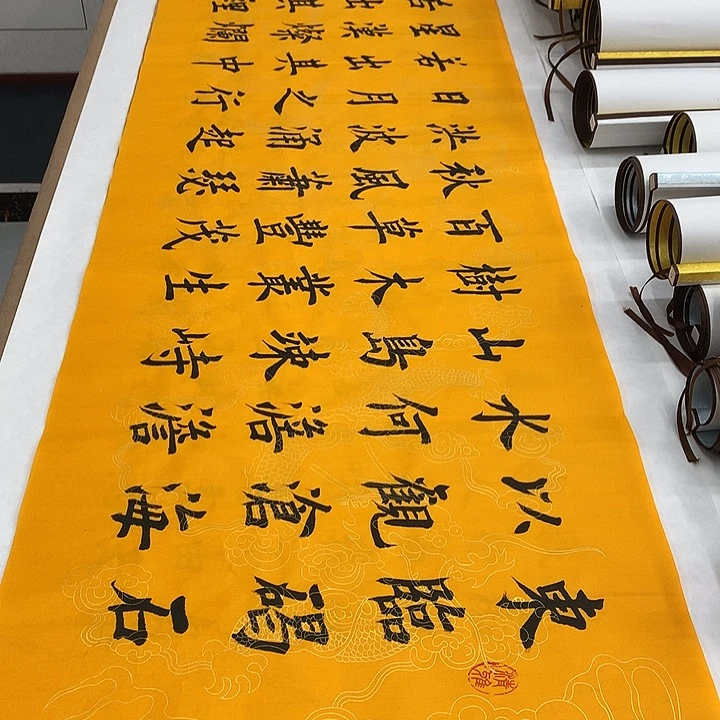 東臨碣石
以觀滄海
水何澹澹
山島竦峙
樹木叢生
百草豐茂
秋風蕭瑟
洪波涌起
日月之行
若出其中
星漢燦爛
若出其